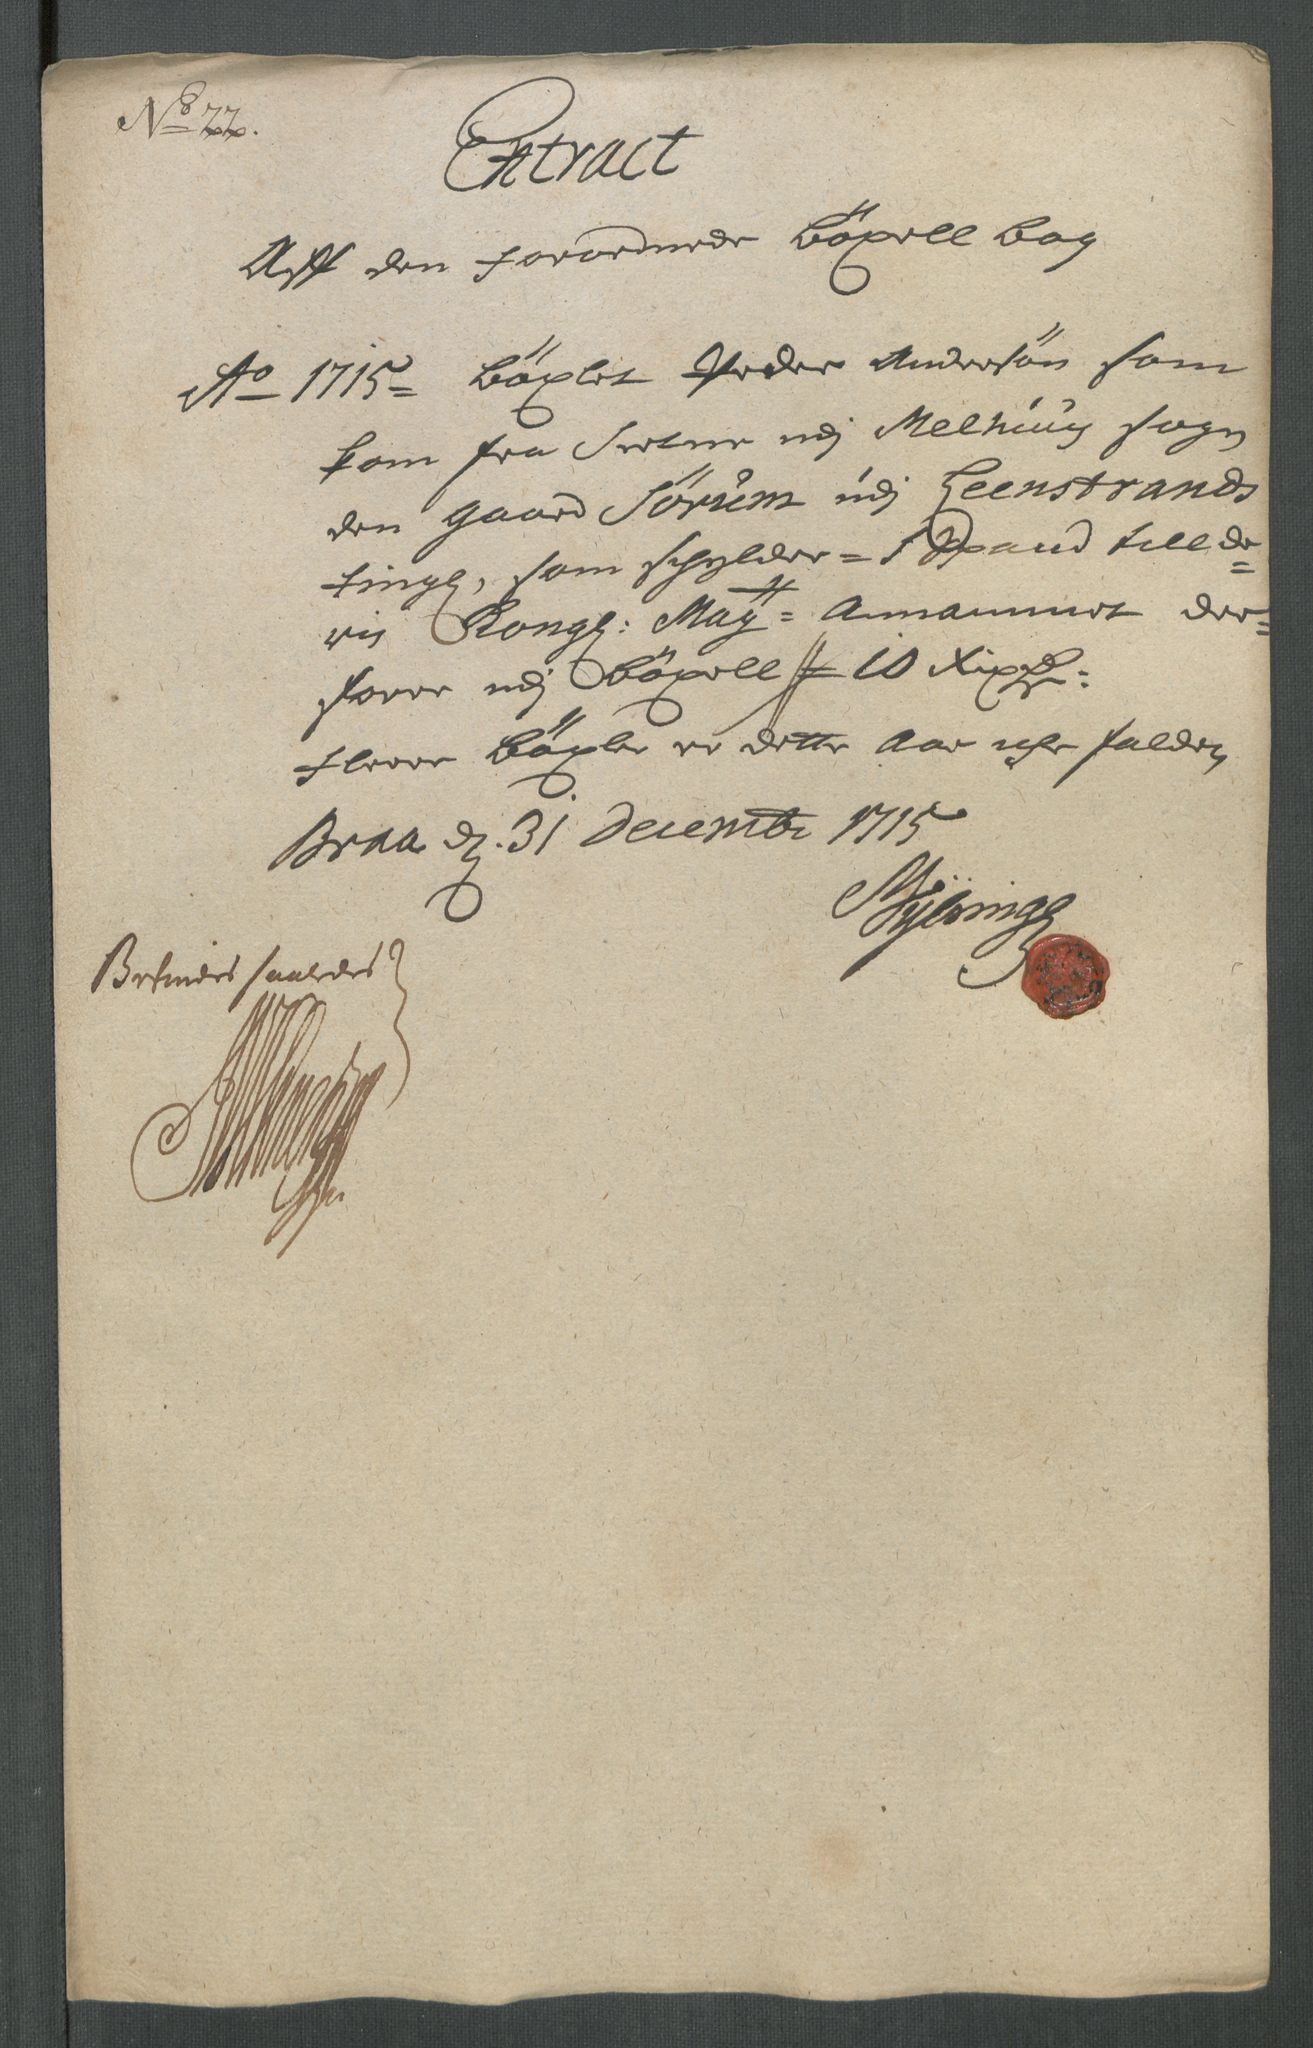 No 22.
Extract
Aff den forordnede böxell bog
Ao 1715 = böxlet Peder Andersön som
kom fra udj Melhuus sogn
den gaard Sörum udj Leenstrands
tingl, som schylder = 1 Spand till de=
ris Kongl: May = Annammet der=
forre udj böxell 10 Rixdl:
flerre böxler er dette Aar iche falden
Braa d. 31 Decembr 1715
Mylting
Befindes saaledes